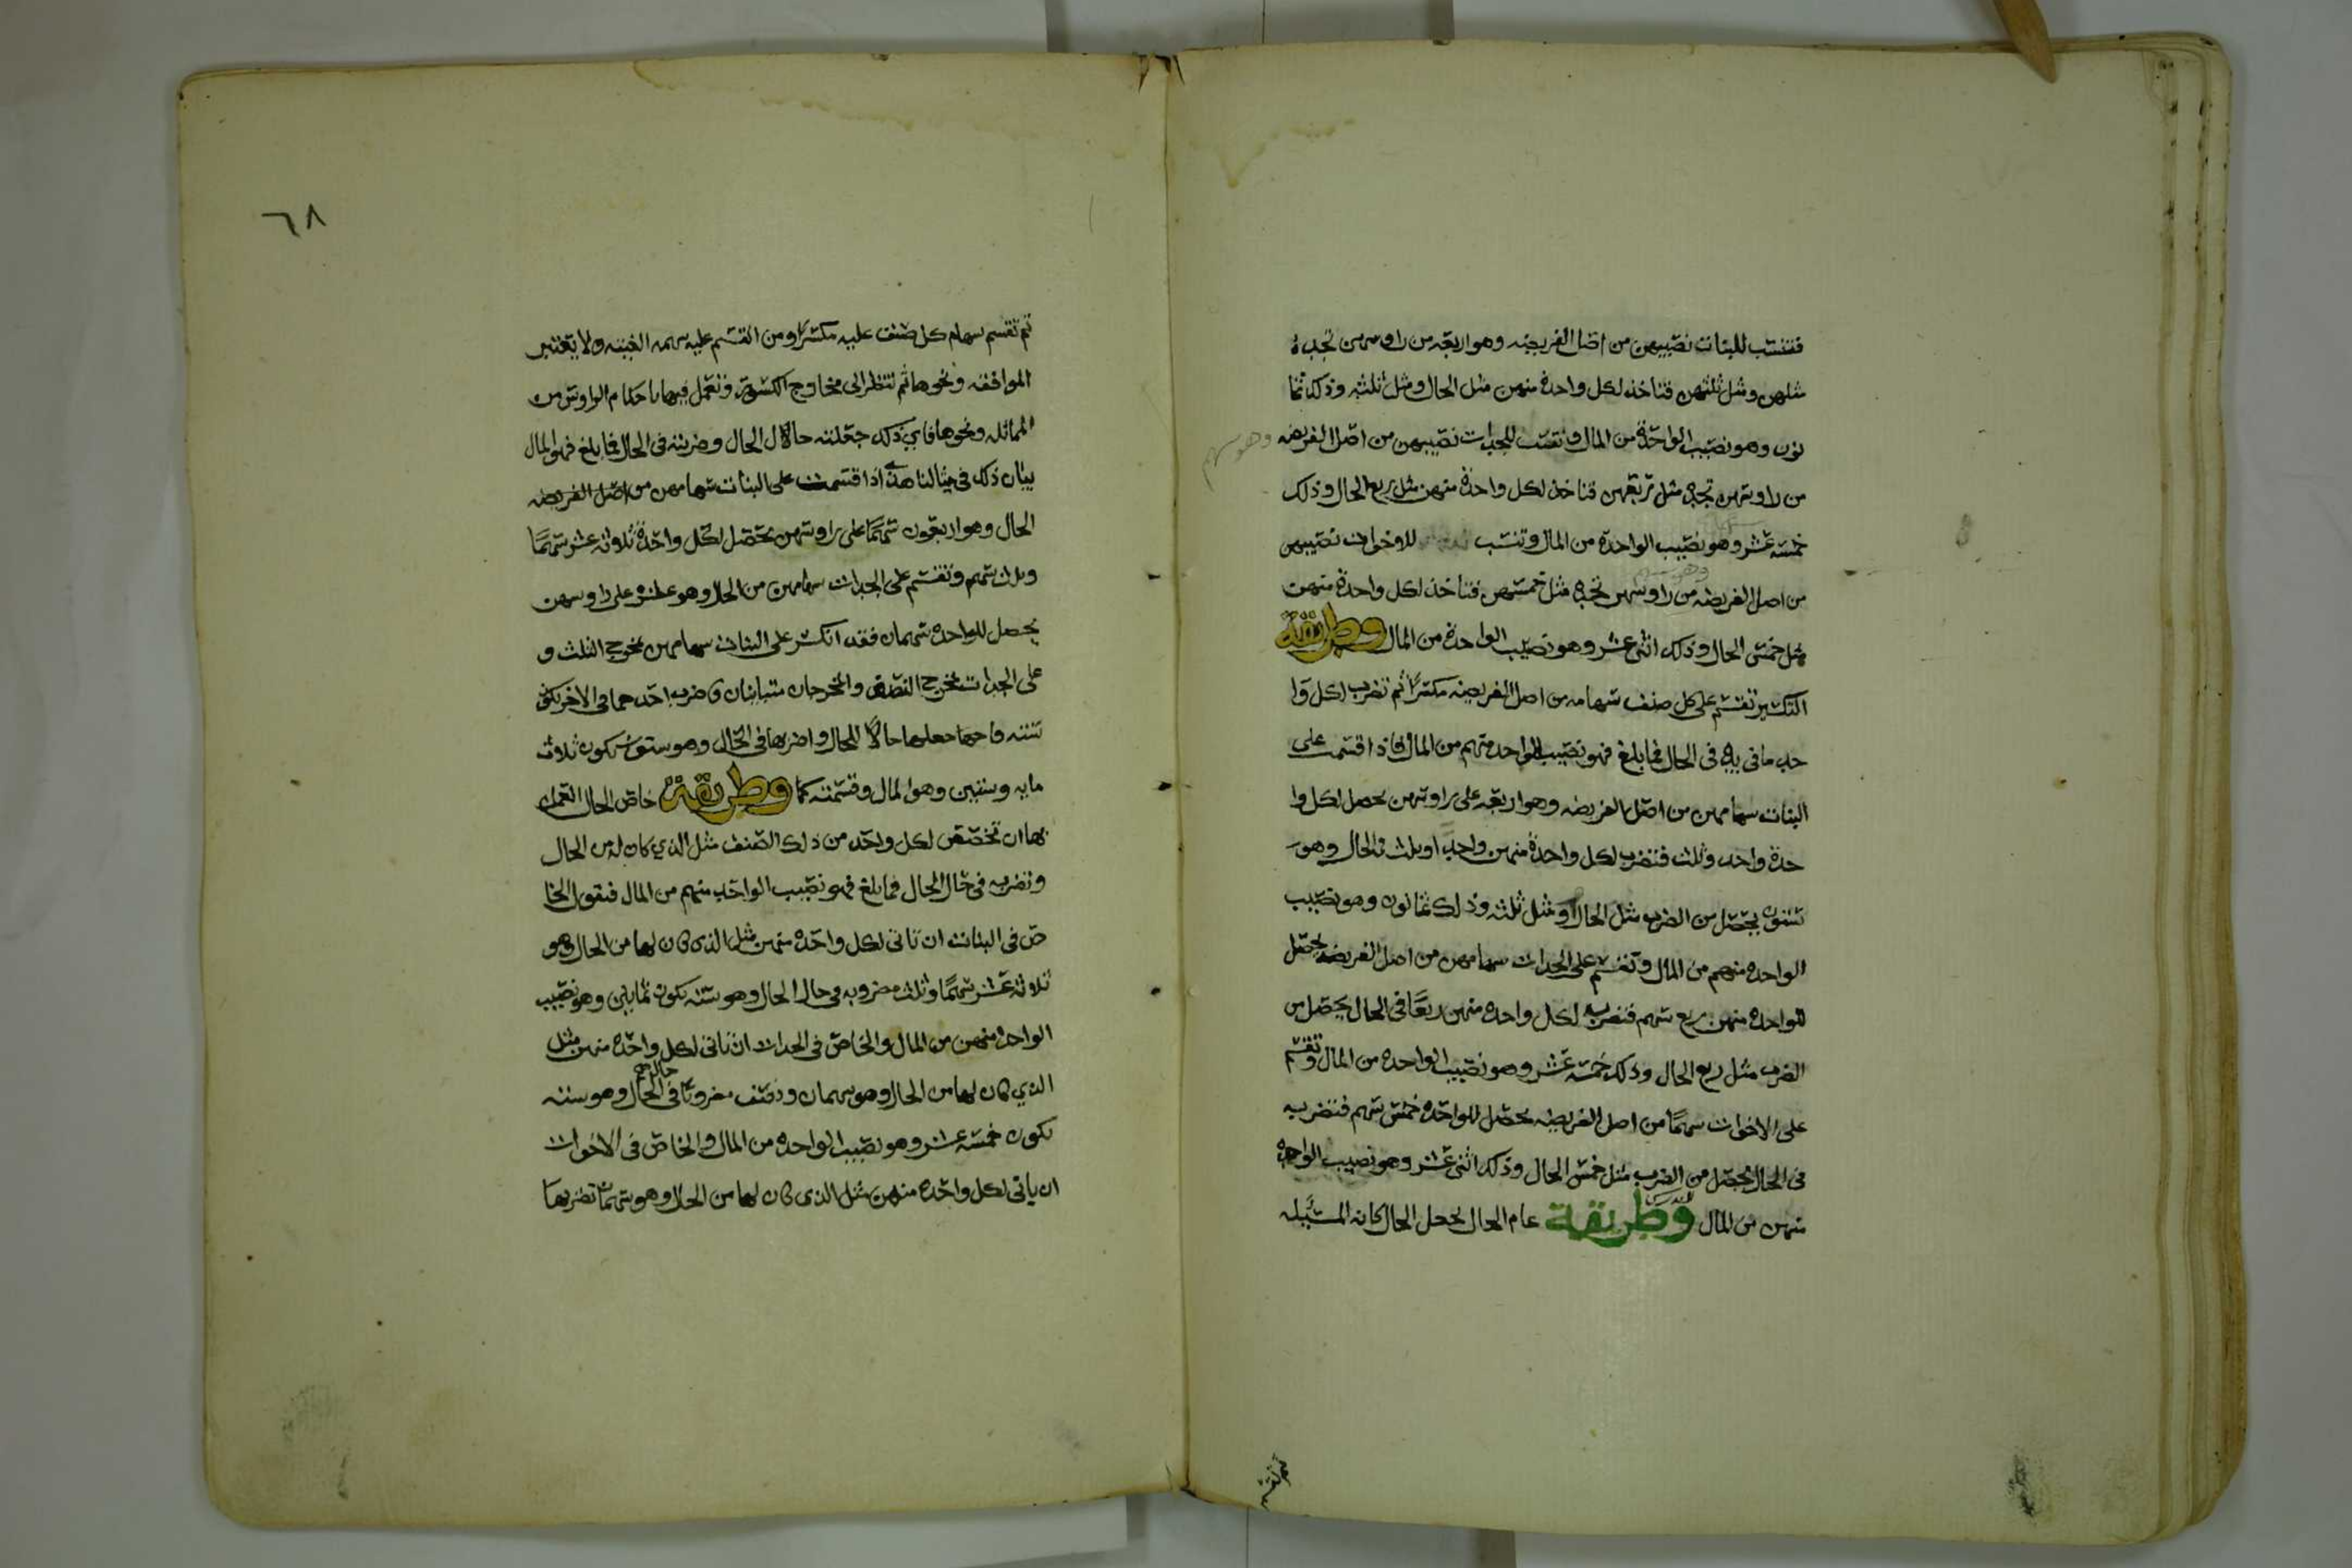 فتنسب للبنات نصيبهن من اصل الفريضه وهو اربعه من راوسهن تجده
مثلهن ومثل ثلثهن فتاخذ لكل واحدة منهن مثل الحال ومثل ثلثه وذلك ثما
نون وهو نصيب الواحدة من المال وتنسب للجدات نصيبهن من اصل الفريضه وهو سهم
من راوسهن تجده مثل ربعهن فتاخذ لكل واحدة منهن مثل ربع الحال وذلك
خمسه عشر وهو نصيب الواحدة من المال وتنسب للاخوات نصيبهن
من اصل الفريضه وهو سهم من راوسهن تجده مثل خمسهن فتاخذ لكل واحدة منهن
مثل خمس الحال وذلك اثنى عشر وهو نصيب الواحدة من المال وطريقة
التكسير تقسم على كل صنف سهامه من اصل الفريضه مكسرًا ثم تضرب لكل وا
حد ما في يده في الحال فما بلغ فهو نصيب الواحد منهم من المال فاذا قسمت على
البنات سهامهن من اصل الفريضه وهو اربعه على راوسهن يحصل لكل وا
حدة واحد وثلث فتضرب لكل واحدة منهن واحدًا وثلث في الحال وهو
ستون يحصل من الضرب مثل الحال ومثل ثلثه وذلك ثمانون وهو نصيب
الواحده منهم من المال وتقسم على الجدات سهامهن من اصل الفريضه يحصل
للواحده منهن ربع سهم فتضرب لكل واحده منهن ربعًا في الحال يحصل من
الضرب مثل ربع الحال وذلك خمسه عشر وهو نصيب الواحده من المال وتقسم
على الاخوات سهمًا من اصل الفريضه يحصل للواحده خمس سهم فتضربه
في الحال يحصل من الضرب مثل خمس الحال وذلك اثنى عشر وهو نصيب الواحده
منهن من المال وطريقة عام الحال يجعل الحال كانه المسئله
ثم تقسم
٦٨
ثم تقسم سهام كل صنف عليه مكسرًا ومن انقسم عليه سهمه الغيته ولا تعتبر
الموافقه ونحوها ثم تنظر الى مخارج الكسور وتعمل فيها باحكام الراوس من
المماثله ونحوها فاي ذلك جعلته حالا لال الحال وضربته في الحال فما بلغ فهو المال
بيان ذلك في مثالنا هذا اذا قسمت على البنات سهامهن من اصل الفريضه
الحال وهو اربعون سهمًا على راوسهن يحصل لكل واحدة ثلاثه عشر سهمًا
وثلث سهم وتقسم على الجدات سهامهن من الحال وهو عشره على راوسهن
يحصل للواحده سهمان فقد انكسر على البنات سهامهن بمخرج الثلث و
على الجدات بمخرج النصف والمخرجان متباينان فاضرب احدهما في الاخر يكون
سته فاجعلها حالًا للحال واضربها في الحال وهو ستون يكون ثلاث
مايه وستين وهو المال وقسمته كما وطريقة خاص الحال العمل
بها ان تخصص لكل واحد من ذلك الصنف مثل الذي كان له من الحال
وتضربه في حال الحال فما بلغ فهو نصيب الواحد منهم من المال فتقول الخا
ص في البنات ان ياتي لكل واحده منهن مثل الذي كان لها من الحال وهو
ثلاثه عشر سهمًا وثلث مضروبه في حال الحال وهو سته يكون ثمانين وهو نصيب
الواحده منهن من المال والخاص في الجدات ان ياتي لكل واحده منهن مثل
الذي كان لها من الحال وهو سهمان ونصف مضروبًا في حال الحال وهو سته
يكون خمسه عشر وهو نصيب الواحده من المال والخاص في الاخوات
ان ياتي لكل واحده منهن مثل الذي كان لها من الحال وهو سهمان تضربها